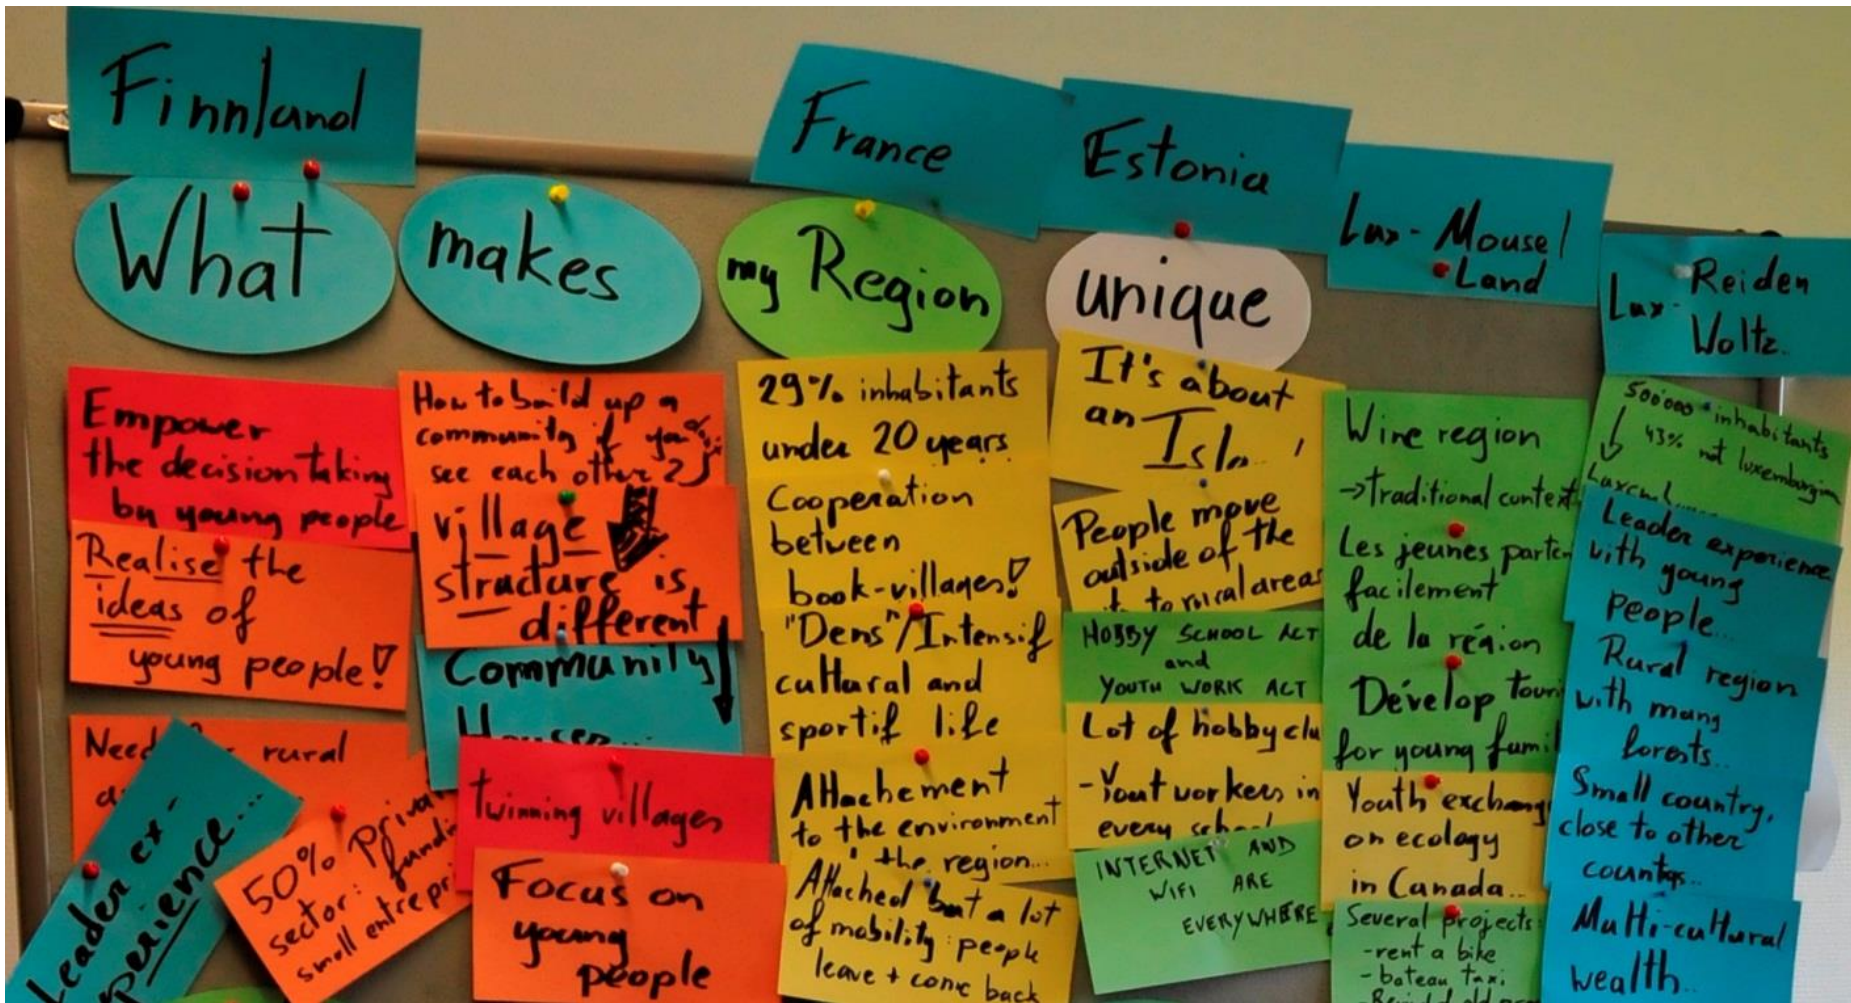 Finnland
France
Estonia
Lux-Mousel
Land
Lux-Reiden
Woltz.
What
makes
my Region
unique
Empower
the decision taking
by young people
Realise the
ideas of
young people!
Need rural
Leader ex-
perience...
50% Priva
sector: fundi
small entrepr
How to build up a
community if you
see each other?
village
structure is
different
Community
Houses...
twinning villages
Focus on
young
people
29% inhabitants
under 20 years
Cooperation
between
book-villages!
"Dens"/Intensif
cultural and
sportif life
Attachement
to the environment
the region...
Attached but a lot
of mobility: people
leave + come back
It's about
an Isla
People move
outside of the
to rural areas
HOBBY SCHOOL ACT
and
YOUTH WORK ACT
Lot of hobby clu
- Yout workers in
every school
INTERNET AND
WIFI ARE
EVERYWHERE
Wine region
→traditional context
Les jeunes parten
facilement
de la région
Dévelop touri
for young famil
Youth exchang
on ecology
in Canada...
Several projects:
- rent a bike
- bateau taxi
500'000 inhabitants
43% not luxembourgian
Leader experience
with young
people...
Rural region
with many
forests..
Small country,
close to other
countrys..
Multi-cultural
wealth..